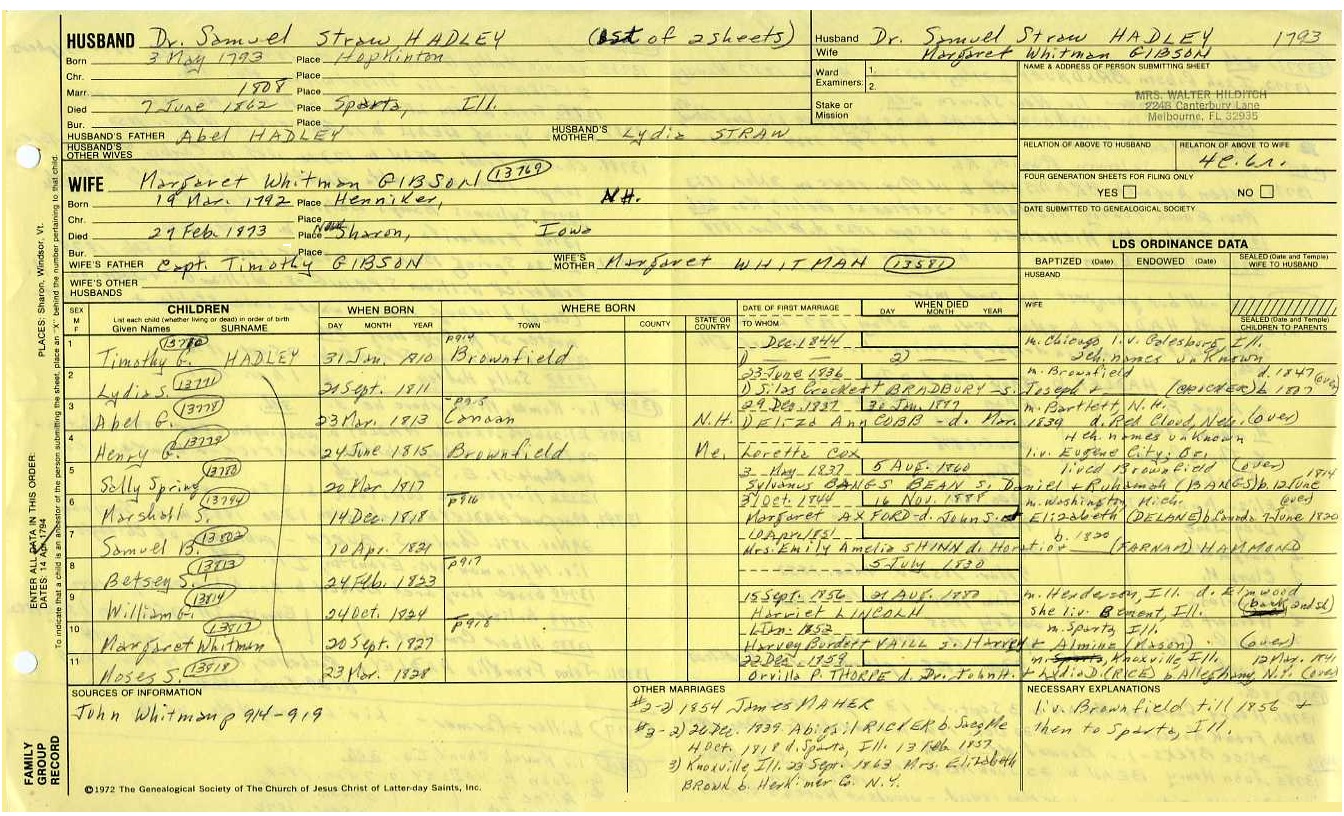 HUSBAND Dr. Samuel Straw HADLEY (1st of 2 sheets)
Born 3 May 1793 Place Hopkinton
Chr. Place
Marr. 1808 Place
Died 7 June 1862 Place Sparta, Ill.
Bur. Place
HUSBAND'S FATHER Abel HADLEY HUSBAND'S MOTHER Lydia STRAW
HUSBAND'S OTHER WIVES
WIFE Margaret Whitman GIBSON 13769
Born 19 Mar. 1792 Place Henniker, N.H.
Chr. Place
Died 27 Feb. 1873 Place New Sharon, Iowa
Bur. Place
WIFE'S FATHER Capt. Timothy GIBSON WIFE'S MOTHER Margaret WHITMAN 13581
WIFE'S OTHER HUSBANDS
Husband Dr. Samuel Straw HADLEY 1793
Wife Margaret Whitman GIBSON
Ward Examiners: 1. 2.
Stake or Mission
NAME & ADDRESS OF PERSON SUBMITTING SHEET
MRS. WALTER HILDITCH
2248 Canterbury Lane
Melbourne, FL 32935
RELATION OF ABOVE TO HUSBAND RELATION OF ABOVE TO WIFE
4c.6r.
FOUR GENERATION SHEETS FOR FILING ONLY
YES NO
DATE SUBMITTED TO GENEALOGICAL SOCIETY
LDS ORDINANCE DATA
BAPTIZED (Date) ENDOWED (Date) SEALED (Date and Temple) WIFE TO HUSBAND
HUSBAND
WIFE
SEALED (Date and Temple) CHILDREN TO PARENTS
SEX M F CHILDREN WHEN BORN WHERE BORN DATE OF FIRST MARRIAGE WHEN DIED
List each child (whether living or dead) in order of birth
Given Names SURNAME DAY MONTH YEAR TOWN COUNTY STATE OR COUNTRY TO WHOM DAY MONTH YEAR
1 13770 p914 Dec. 1844 m. Chicago liv. Galesburg, Ill.
Timothy G. HADLEY 31 Jan. 1810 Brownfield 1) 2) 2ch. names unknown
2 13771 23 June 1836 m. Brownfield d. 1847 (over)
Lydia S. 21 Sept. 1811 1) Silas Crockett BRADBURY s. Joseph (RICKER) b. 1807
3 13778 p915 29 Dec. 1837 30 Jan. 1897 m. Bartlett, N.H.
Abel G. 23 Mar. 1813 Conway N.H. 1) Eliza Ann COBB - d. Mar. 1839 d. Red Cloud, Neb. (over)
4 13779 4ch. names unknown
Henry G. 24 June 1815 Brownfield Me. Loretta Cox liv. Eugene City, Or.
5 13780 3 May 1837 5 Aug. 1860 lived Brownfield (over) 1814
Sally Spring 20 Mar. 1817 Sylvanus BANGS BEAN s. Daniel + Ruhamah (BANGS) b. 12 June
6 13794 p916 31 Oct. 1844 16 Nov. 1888 m. Washington, Mich. (over)
Marshall S. 14 Dec. 1818 Margaret AXFORD - d. John S. + Elizabeth (DELANE) b. Canada 7 June 1820
7 13802 10 April 1851 b. 1820
Samuel B. 10 Apr. 1821 Mrs. Emily Amelia SHINN d. Horatio + (FARNAM) HAMMOND
8 13813 p917 5 July 1830
Betsey S. 24 Feb. 1823
9 13814 15 Sept. 1856 21 Aug. 1880 m. Henderson, Ill. d. Elmwood
William G. 24 Oct. 1824 Harriet LINCOLN she liv. Bement, Ill. (back 2nd sh)
10 13817 p918 1 Jan. 1852 m. Sparta, Ill.
Margaret Whitman 20 Sept. 1827 Harvey Burdett VAILL s. Harvey + Almina (Mason) (over)
11 13818 22 Dec. 1859 m. Knoxville, Ill. 12 Mar. 1841
Moses S. 23 Mar. 1828 Orvilla P. THORPE d. Dr. John H. + Lydia D. (RICE) b. Alleghany, N.Y. (over)
SOURCES OF INFORMATION
John Whitman p 914-919
OTHER MARRIAGES
#2-2) 1854 James MAHER
#3-2) 26 Dec. 1839 Abigail RICKER b. Saco, Me
4 Oct. 1818 d. Sparta, Ill. 13 Feb. 1857
3) Knoxville Ill. 23 Sept. 1863 Mrs. Elizabeth
BROWN b. Herkimer Co. N.Y.
NECESSARY EXPLANATIONS
liv. Brownfield till 1856 +
then to Sparta, Ill.
©1972 The Genealogical Society of The Church of Jesus Christ of Latter-day Saints, Inc.
FAMILY GROUP RECORD
ENTER ALL DATA IN THIS ORDER:
DATES: 14 Apr 1794 PLACES: Sharon, Windsor, Vt.
To indicate that a child is an ancestor of the person submitting the sheet, place an "X" behind the number pertaining to that child.